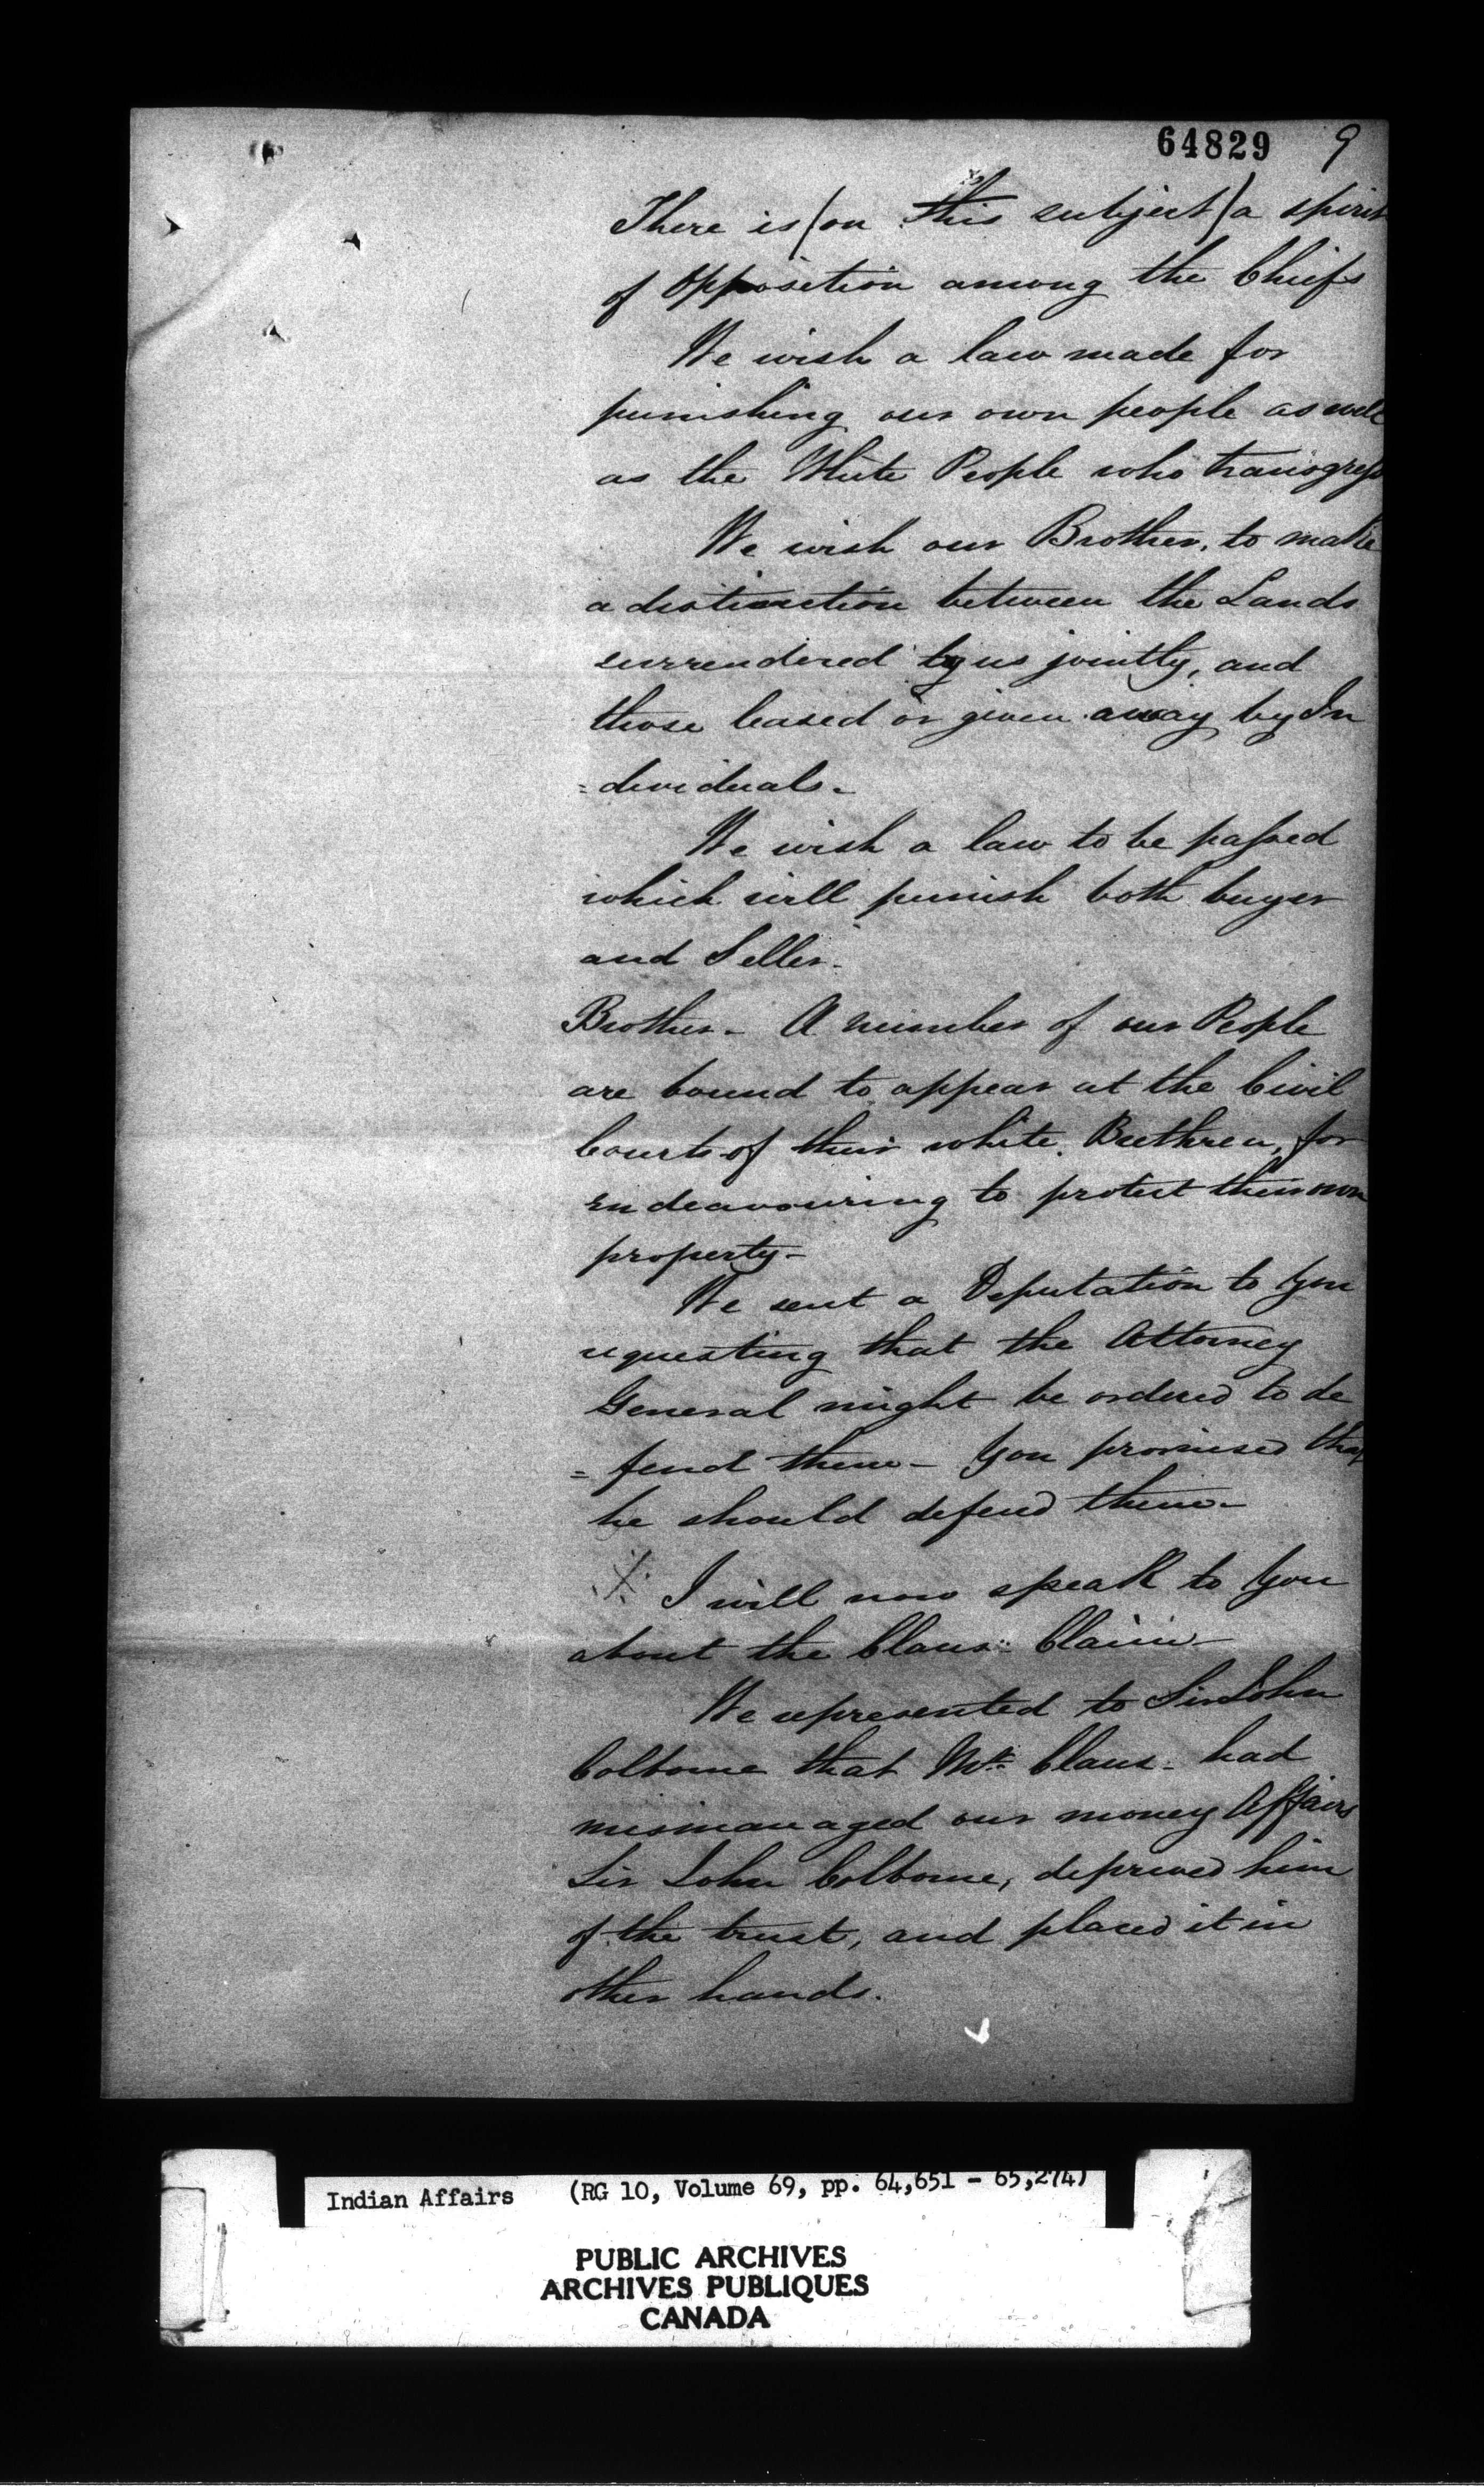 64829 9
There is (on this subject) a spirit
of opposition among the Chiefs
We wish a law made for
punishing our own people as well
as the White People who transgress
We wish our Brother, to make
a distinction between the Lands
surrendered by us jointly, and
those leased or given away by In
=dividuals-
We wish a law to be passed
which will punish both buyer
and Seller-
Brother- A number of our People
are bound to appear at the Civil
Courts of their white Brethren, for
endeavouring to protect their own
property-
We sent a Deputation to You
requesting that the Attorney
General might be ordered to de
=fend them- You promised that
he should defend them-
I will now speak to You
about the Claus Claim-
We represented to Sir John
Colborne that Mr. Claus had
mismanaged our money Affairs
Sir John Colborne, deprived him
of the trust, and placed it in
other hands.
Indian Affairs (RG 10, Volume 69, pp. 64,651 - 65,274)
PUBLIC ARCHIVES
ARCHIVES PUBLIQUES
CANADA